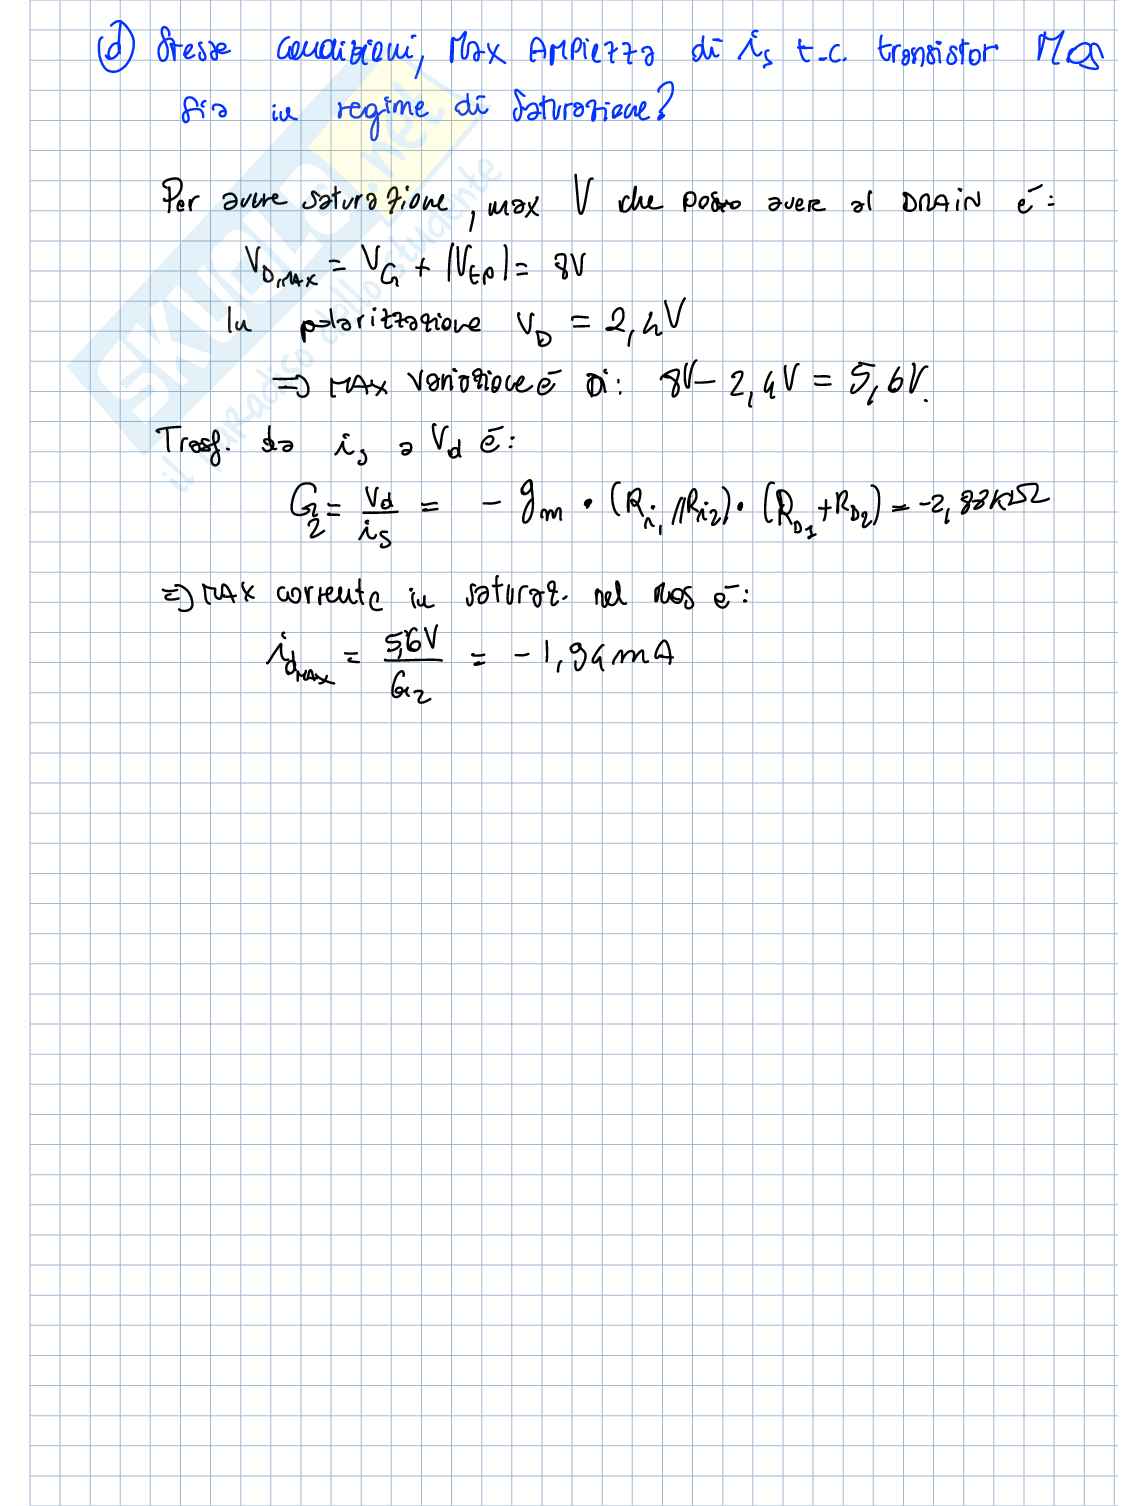 (d) Stesse condizioni, Max AMPiezza di is t.c. transistor MOS
sia in regime di saturazione?
Per avere saturazione, max V che posso avere al DRAIN è:
VD,MAX = VG + |Vtp| = 8V
In polarizzazione VD = 2,4V
=> MAX variazione è Di: 8V - 2,4V = 5,6V.
Trasf. da is a Vd è:
G2 = Vd/is = - gm · (Ri1//Ri2) · (RD1 + RD2) = -2,88KΩ
=> MAX corrente in saturaz. nel mos è:
idMAX = 5,6V/G2 = -1,94mA
SKUOLA.net
il paradiso dello studente